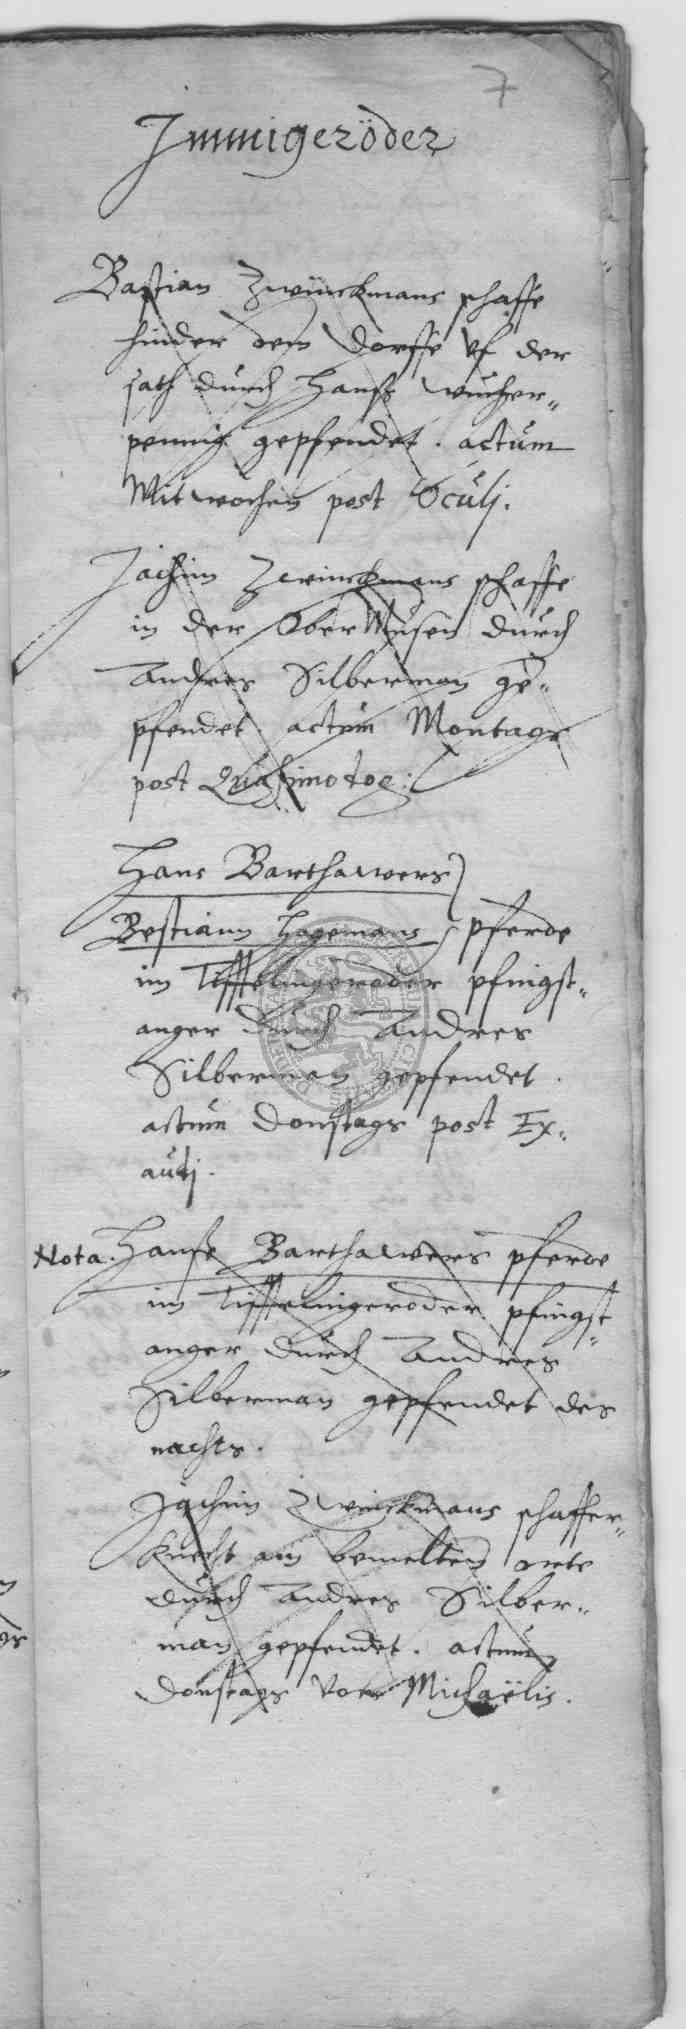 7
Immigeröder
Bastian Zwinckmans schaffe
hinder dem dorffe vf der
sath durch Hanß Wucher„
pennig gepfendet. actum
Mitwochen post Oculj.
Jachim Zwinckmans schaffe
in der Ober Wusen durch
Andres Silberman ge„
pfendet. actum Montags
post Quasimodog:
Hans Barthawers
Bestiann Hagemans pferde
im Tifftlingeroder pfingst„
anger durch Andres
Silberman gepfendet.
actum donstags post Ex„
audj.
Nota. Hanße Barthawers pferde
im Tifftlingeroder pfingst„
anger durch Andres
Silberman gepfendet des
nachts.
Jochim Zwinckmans schaffer„
knecht am bemelten orte
durch Andres Silber„
man gepfendet. actum
donstags vor Michaëlis.